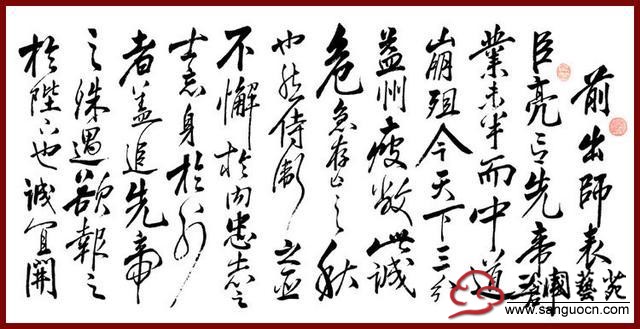 前出師表
臣亮言先帝創
業未半而中道
崩殂今天下三分
益州疲敝此誠
危急存亡之秋
也然侍衛之臣
不懈於内忠志之
士忘身於外
者蓋追先帝
之殊遇欲報之
於陛下也誠宜開
國藝苑
www.sanguocn.com